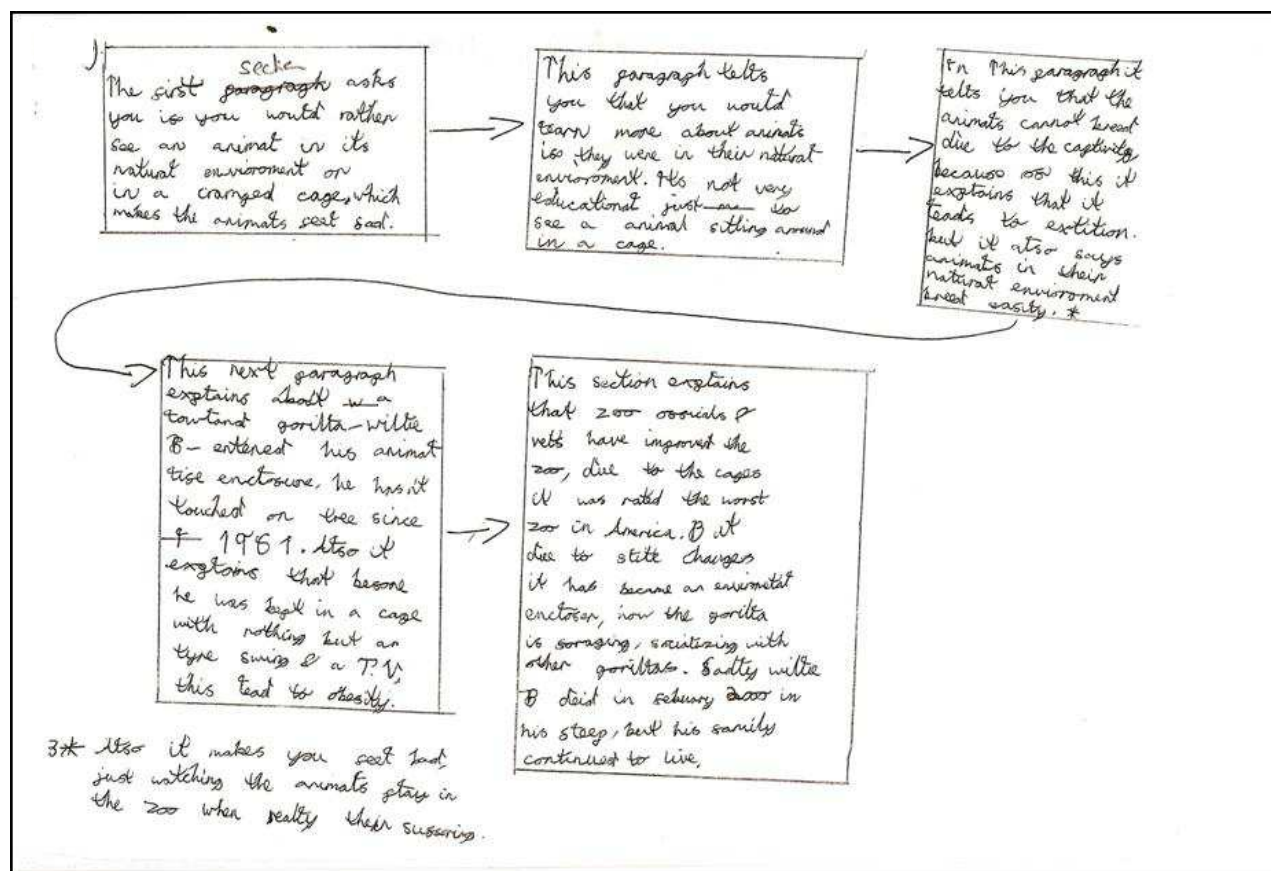 1.
section
The first paragraph asks
you if you would rather
see an animal in its
natural envioroment or
in a cramped cage, which
makes the animals feel sad.
This paragraph tells
you that you would
learn more about animals
if they were in their natural
envioroment. It's not very
educational just to
see a animal sitting around
in a cage.
In This paragraph it
tells you that the
animals cannot breed
due to the captivity
because off this it
explains that it
leads to extition.
but it also says
animals in their
natural envioroment
breed easily. *
This next paragraph
explains about a
lowland gorilla - willie
B - entered his animal
life enclosure, he hasn't
touched on tree since
1961. Also it
explains that before
he was kept in a cage
with nothing but an
tyre swing & a T.V,
this lead to obesity.
This section explains
that zoo officials &
vets have improved the
zoo, due to the cages
it was rated the worst
zoo in America. But
due to state changes
it has became an
encloser, now the gorilla
is foraging, socializing with
other gorillas. Sadly willie
B deid in febuary 2000 in
his sleep, but his family
continued to live,
3* Also it makes you feel bad,
just watching the animals play in
the zoo when really their suffering.